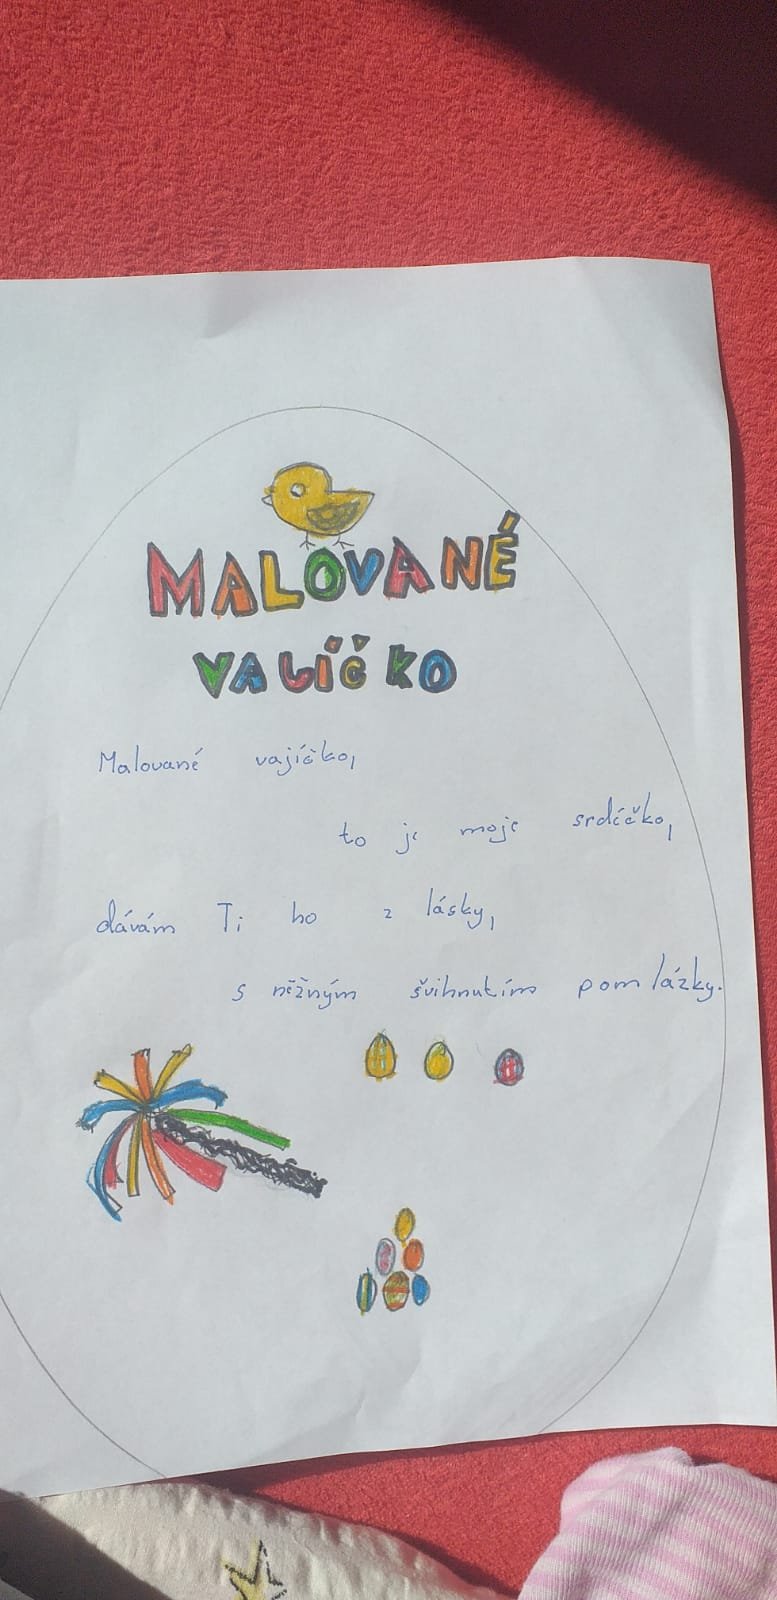 MALOVANÉ
VAJÍČKO
Malované vajíčko,
to je moje srdíčko,
dávám Ti ho z lásky,
s něžným švihnutím pomlázky.